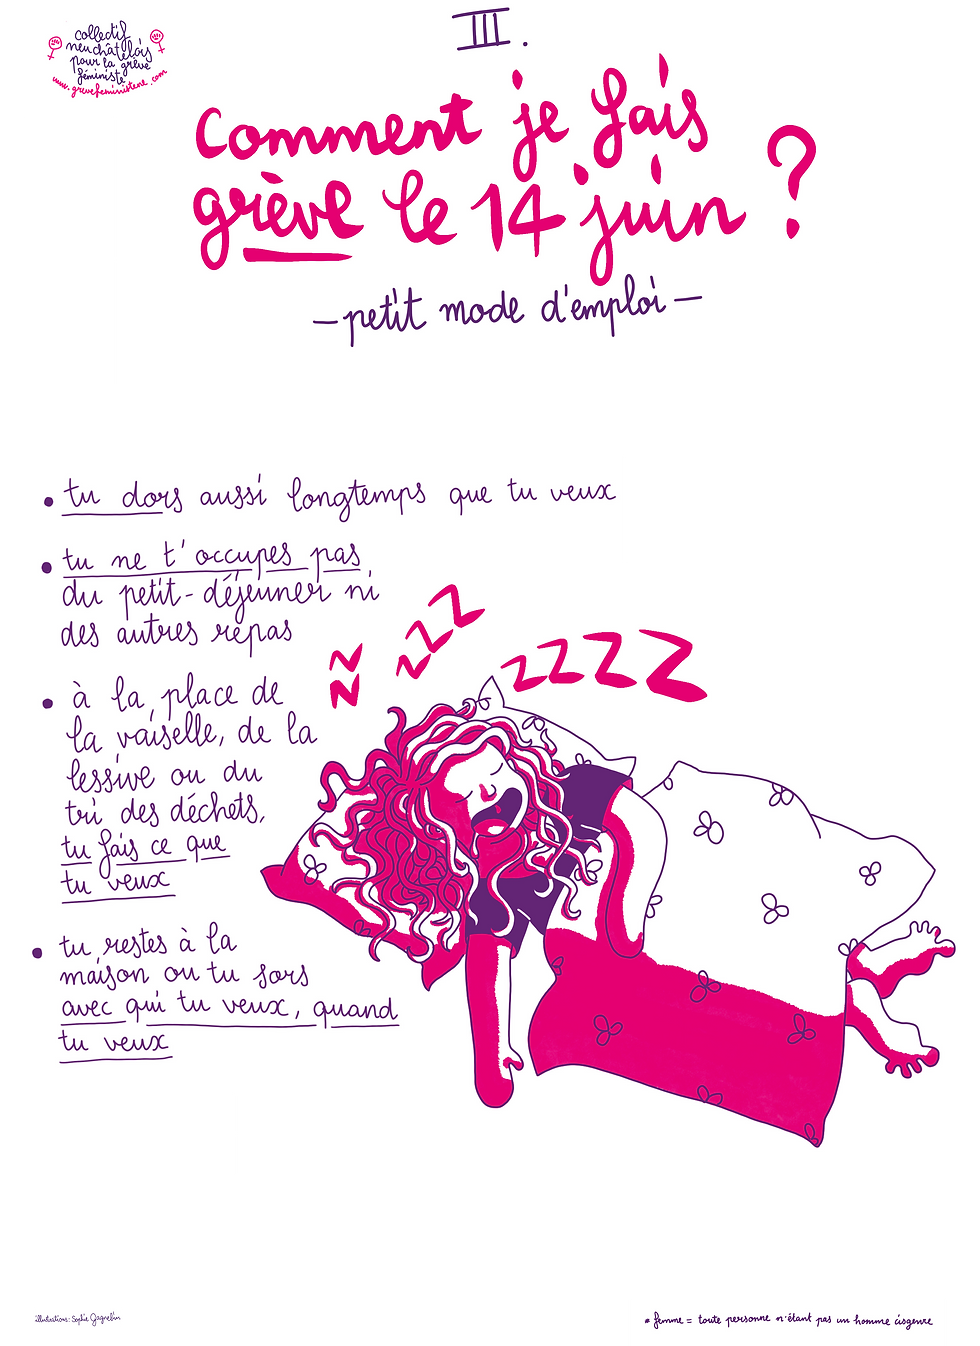 collectif
neuchâtelois
pour la grève
féministe
www.grevefeministene.com
III.
Comment je fais
grève le 14 juin ?
- petit mode d'emploi -
• tu dors aussi longtemps que tu veux
• tu ne t'occupes pas
du petit-déjeuner ni
des autres repas
• à la place de
la vaisselle, de la
lessive ou du
tri des déchets,
tu fais ce que
tu veux
• tu restes à la
maison ou tu sors
avec qui tu veux, quand
tu veux
zz
zzz
zzzz
illustrations: Sophie Gagnebin
* femme = toute personne n'étant pas un homme cisgenre